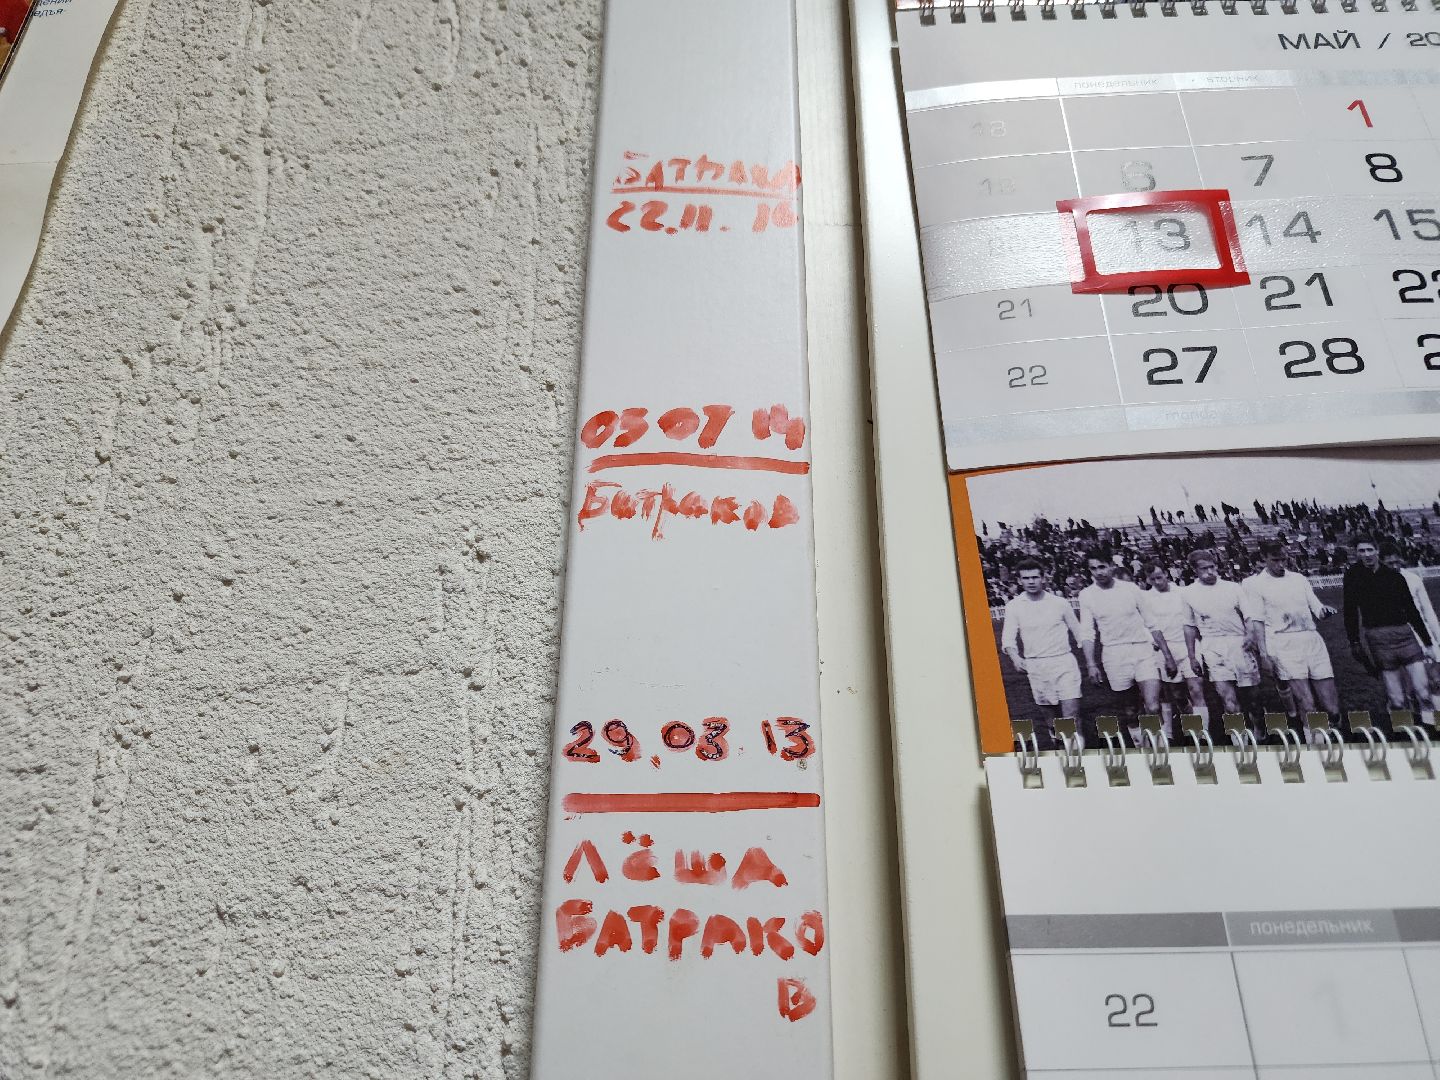 БАТРАКОВ
22.11.16
05 07 14
Батраков
29.03.13
ЛЁША
БАТРАКО
В
МАЙ / 20
понедельник вторник
18 1
19 6 7 8
20 13 14 15
21 20 21 22
22 27 28 2
monday
понедельник
22 1